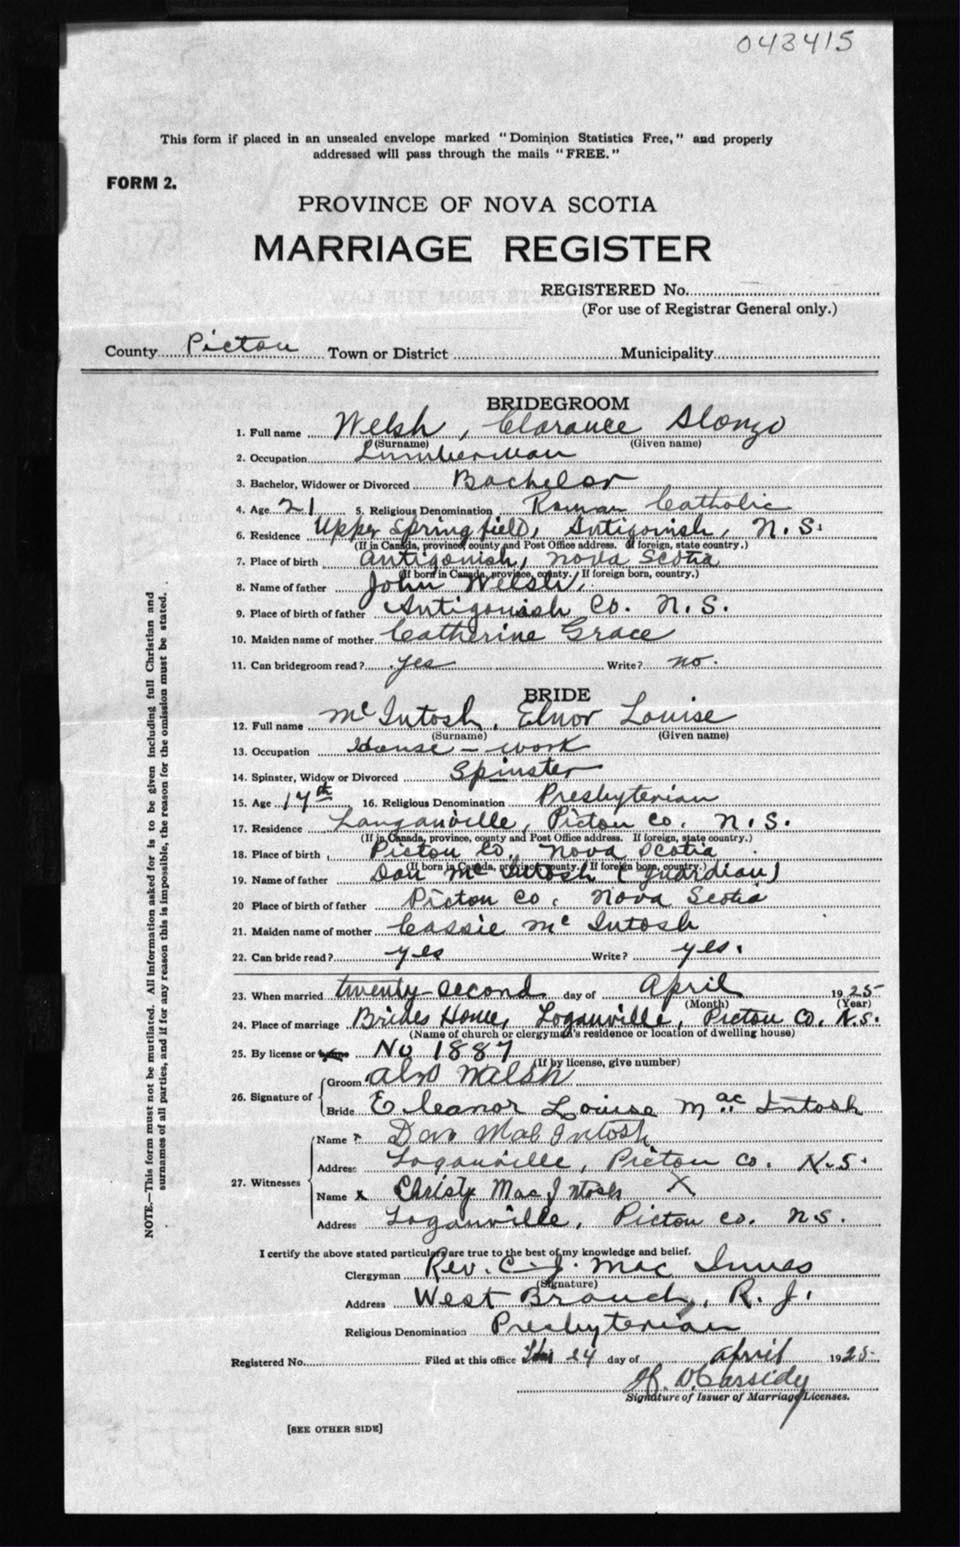 043415
This form if placed in an unsealed envelope marked "Dominion Statistics Free," and properly
addressed will pass through the mails "FREE."
FORM 2.
PROVINCE OF NOVA SCOTIA
MARRIAGE REGISTER
REGISTERED No.
(For use of Registrar General only.)
County Pictou Town or District Municipality
BRIDEGROOM
1. Full name Welsh, Clarance Alonzo
(Surname) (Given name)
2. Occupation Lumberman
3. Bachelor, Widower or Divorced Bachelor
4. Age 21 5. Religious Denomination Roman Catholic
6. Residence Upper Springfield, Antigonish, N.S.
(If in Canada, province, county and Post Office address. If foreign, state country.)
7. Place of birth Antigonish, Nova Scotia
(If born in Canada, province, county. If foreign born, country.)
8. Name of father John Welsh,
9. Place of birth of father Antigonish Co. N.S.
10. Maiden name of mother Catherine Grace
11. Can bridegroom read? yes Write? no.
BRIDE
12. Full name McIntosh, Elnor Louise
(Surname) (Given name)
13. Occupation House-work
14. Spinster, Widow or Divorced Spinster
15. Age 17th 16. Religious Denomination Presbyterian
17. Residence Loganville, Pictou Co. N.S.
(If in Canada, province, county and Post Office address. If foreign, state country.)
18. Place of birth Pictou Co Nova Scotia
(If born in Canada, province, county. If foreign born, country.)
19. Name of father Dan McIntosh (guardian)
20 Place of birth of father Pictou Co. Nova Scotia
21. Maiden name of mother Cassie McIntosh
22. Can bride read? yes Write? yes.
23. When married twenty-second day of April 1925
(Month) (Year)
24. Place of marriage Brides Home, Loganville, Pictou Co. N.S.
(Name of church or clergyman's residence or location of dwelling house)
25. By license or No 1887
(If by license, give number)
26. Signature of
Groom Alno Walsh
Bride Eleanor Louise MacIntosh
27. Witnesses
Name x Dan MacIntosh
Address Loganville, Pictou Co. N.S.
Name x Christy MacIntosh X
Address Loganville, Pictou Co. N.S.
I certify the above stated particulars are true to the best of my knowledge and belief.
Clergyman Rev. C. J. MacInnes
(Signature)
Address West Branch, R. J.
Religious Denomination Presbyterian
Registered No. Filed at this office this 24 day of April 1925
H. D. Cassidy
Signature of Issuer of Marriage Licenses.
[SEE OTHER SIDE]
NOTE.—This form must not be mutilated. All information asked for is to be given including full Christian and
surnames of all parties, and if for any reason this is impossible, the reason for the omission must be stated.